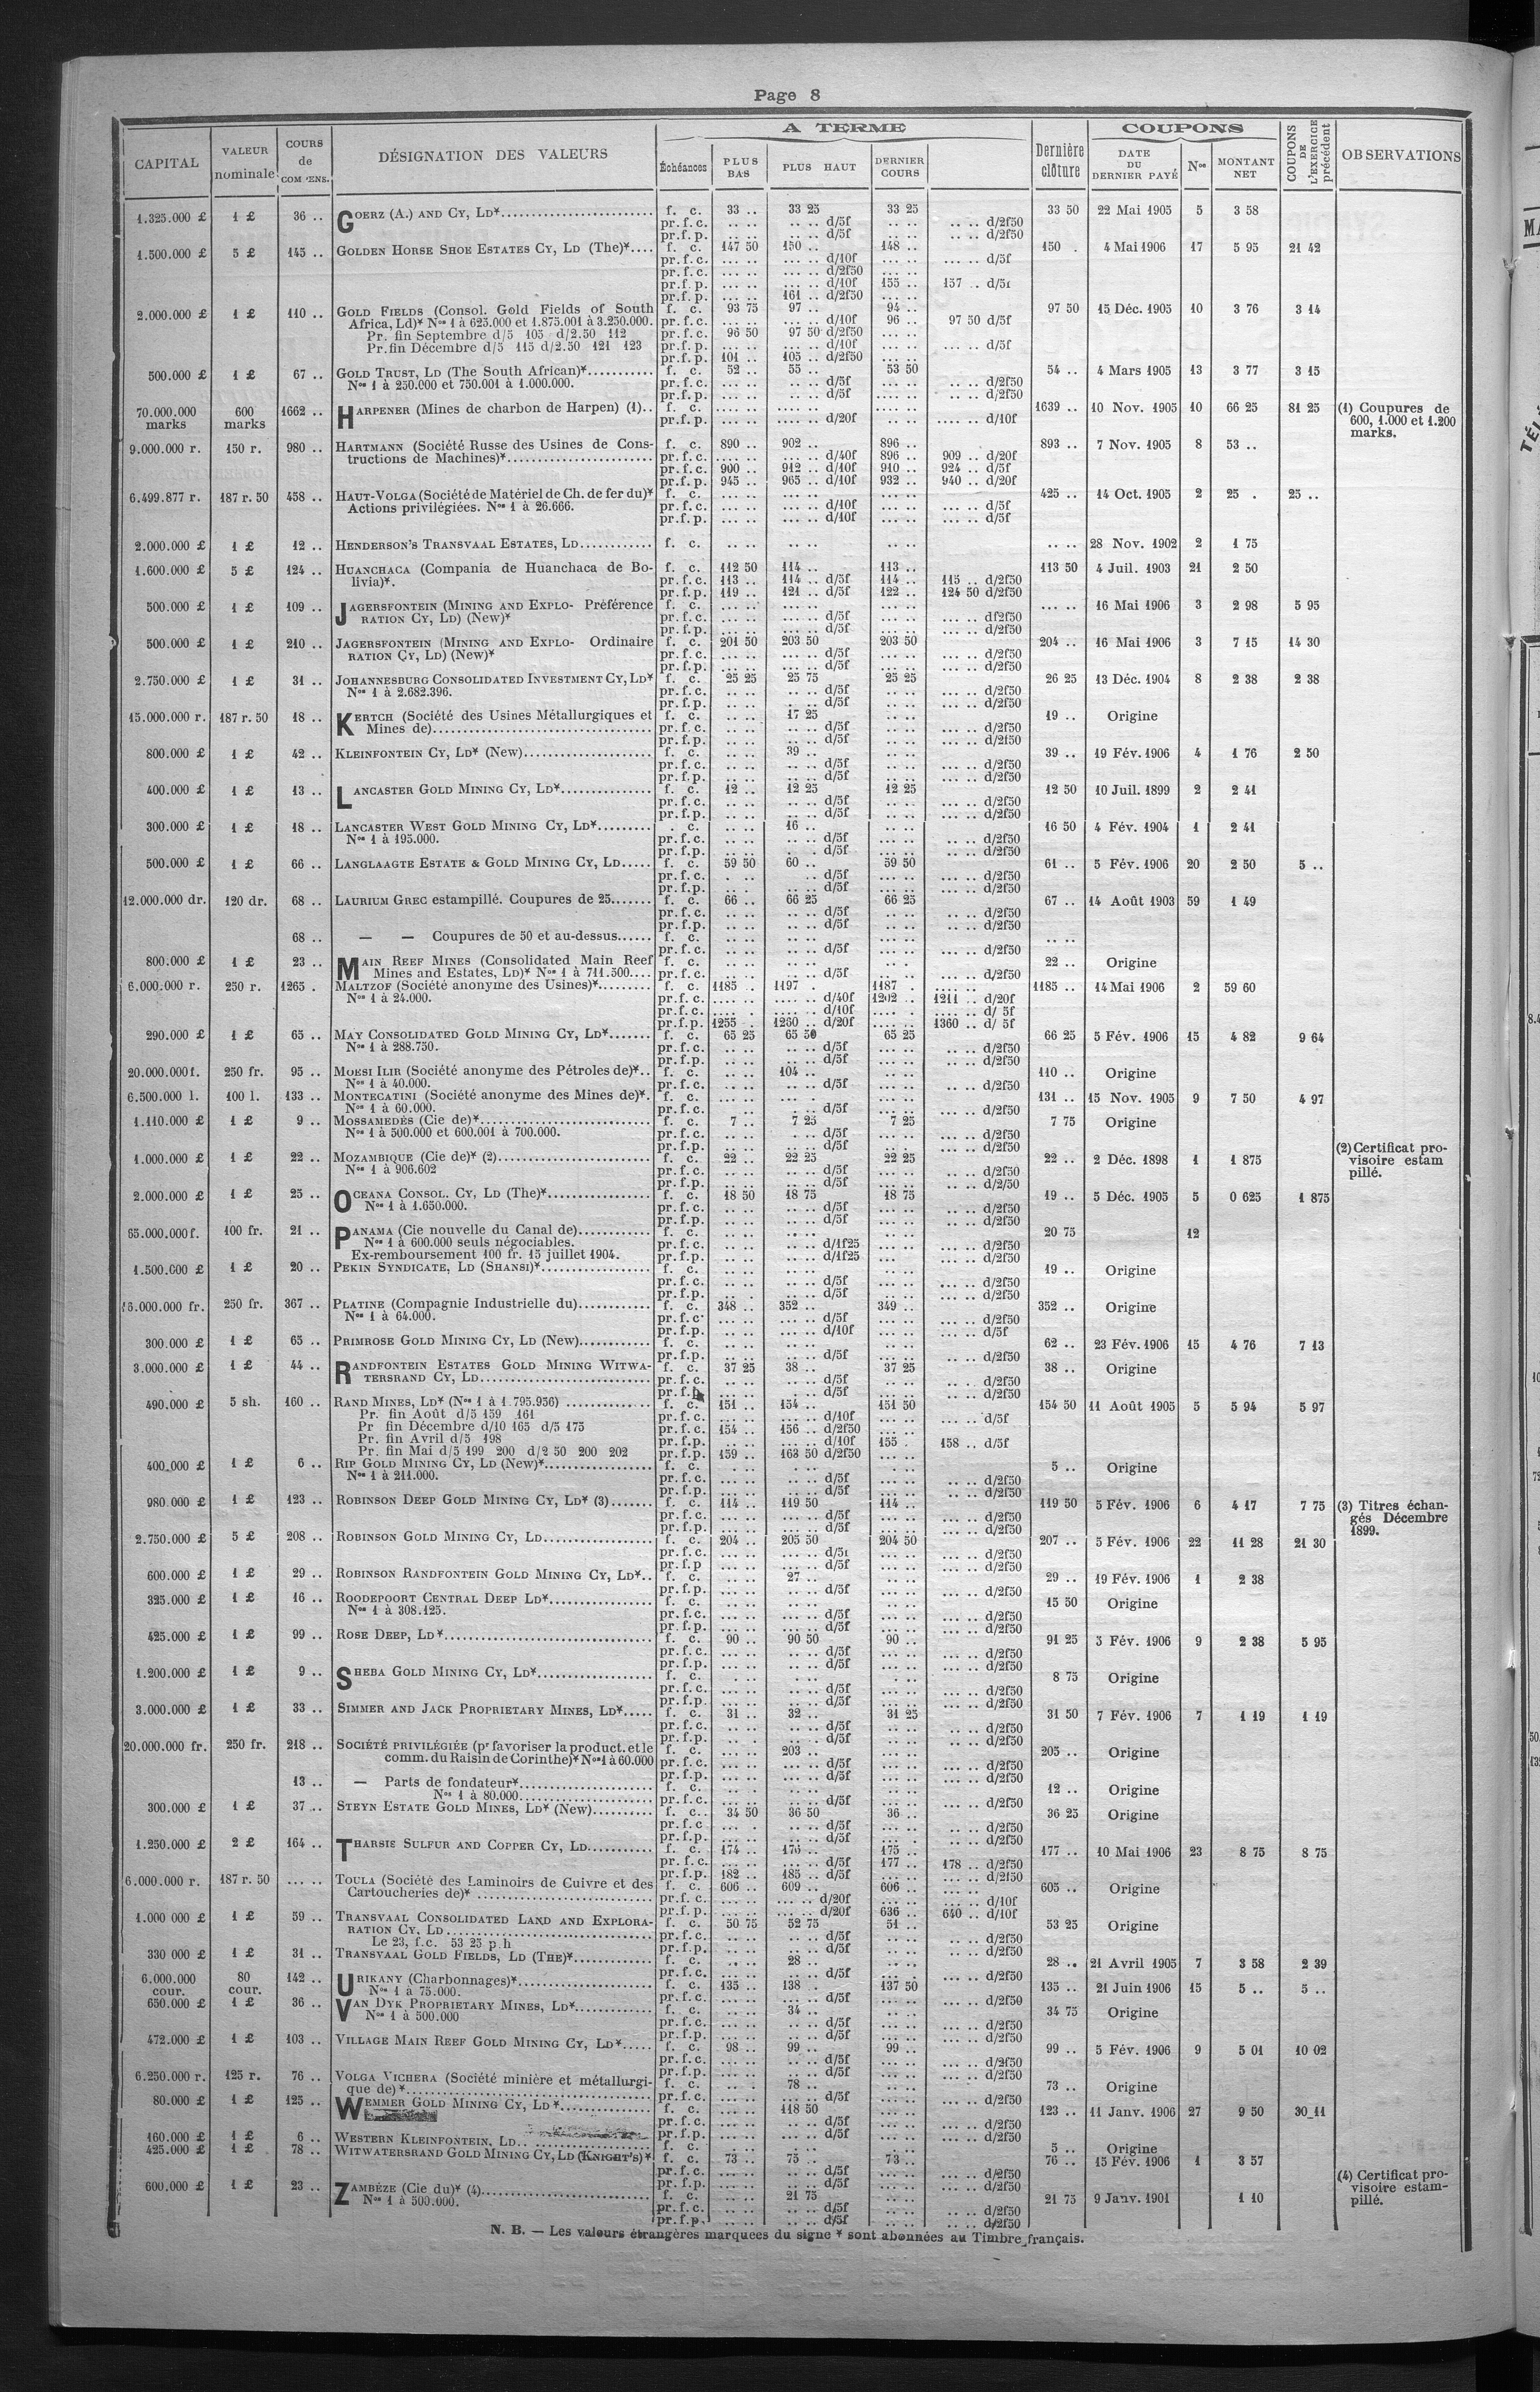 Page 8
CAPITAL | VALEUR nominale | COURS de COMPENS. | DÉSIGNATION DES VALEURS | A TERME | Dernière clôture | COUPONS | COUPONS DE L'EXERCICE précédent | OBSERVATIONS
Échéances | PLUS BAS | PLUS HAUT | DERNIER COURS | DATE DU DERNIER PAYÉ | Nos | MONTANT NET
1.325.000 £ | 1 £ | 36 .. | GOERZ (A.) AND CY, LD* | f. c. | 33 .. | 33 25 | 33 25 | 33 50 | 22 Mai 1905 | 5 | 3 58
pr. f. c. | .. .. | .. .. d/5f | .. .. | .. .. d/2f50
pr. f. p. | .. .. | .. .. d/5f | .. .. | .. .. d/2f50
1.500.000 £ | 5 £ | 145 .. | GOLDEN HORSE SHOE ESTATES CY, LD (The)* | f. c. | 147 50 | 150 .. | 148 .. | 150 . | 4 Mai 1906 | 17 | 5 95 | 21 42
pr. f. c. | ... .. | ... .. d/10f | ... .. | ... .. d/5f
pr. f. c. | ... .. | ... .. d/2f50 | ... ..
pr. f. p. | ... .. | ... .. d/10f | 155 .. | 157 .. d/5f
pr. f. p. | ... .. | 161 .. d/2f50 | ... ..
2.000.000 £ | 1 £ | 110 .. | GOLD FIELDS (Consol. Gold Fields of South | f. c. | 93 75 | 97 .. | 94 .. | 97 50 | 15 Déc. 1905 | 10 | 3 76 | 3 14
Africa, Ld)* Nos 1 à 625.000 et 1.875.001 à 3.250.000. | pr. f. c. | ... .. | ... .. d/10f | 96 .. | 97 50 d/5f
Pr. fin Septembre d/5 105 d/2.50 112 | pr. f. c. | 96 50 | 97 50 d/2f50 | ... ..
Pr. fin Décembre d/5 115 d/2.50 121 123 | pr. f. p. | ... .. | ... .. d/10f | ... .. | ... .. d/5f
pr. f. p. | 101 .. | 105 .. d/2f50 | ... ..
500.000 £ | 1 £ | 67 .. | GOLD TRUST, LD (The South African)* | f. c. | 52 .. | 55 .. | 53 50 | 54 .. | 4 Mars 1905 | 13 | 3 77 | 3 15
Nos 1 à 250.000 et 750.001 à 1.000.000. | pr. f. c. | ... .. | .. .. d/5f | ... .. | .. .. d/2f50
pr. f. p. | ... .. | .. .. d/5f | ... .. | .. .. d/2f50
70.000.000 marks | 600 marks | 1662 .. | HARPENER (Mines de charbon de Harpen) (1).. | f. c. | .... .. | .... .. | .... .. | 1639 .. | 10 Nov. 1905 | 10 | 66 25 | 81 25 | (1) Coupures de 600, 1.000 et 1.200 marks.
pr. f. p. | .... .. | .... .. d/20f | .... .. | .... .. d/10f
9.000.000 r. | 150 r. | 980 .. | HARTMANN (Société Russe des Usines de Cons- | f. c. | 890 .. | 902 .. | 896 .. | 893 .. | 7 Nov. 1905 | 8 | 53 ..
tructions de Machines)* | pr. f. c. | ... .. | ... .. d/40f | 896 .. | 909 .. d/20f
pr. f. c. | 900 .. | 912 .. d/10f | 910 .. | 924 .. d/5f
pr. f. p. | 945 .. | 965 .. d/10f | 932 .. | 940 .. d/20f
6.499.877 r. | 187 r. 50 | 458 .. | HAUT-VOLGA (Société de Matériel de Ch. de fer du)* | f. c. | ... .. | ... .. | ... .. | 425 .. | 14 Oct. 1905 | 2 | 25 . | 25 ..
Actions privilégiées. Nos 1 à 26.666. | pr. f. c. | ... .. | ... .. d/10f | ... .. | ... .. d/5f
pr. f. p. | ... .. | ... .. d/10f | ... .. | ... .. d/5f
2.000.000 £ | 1 £ | 12 .. | HENDERSON'S TRANSVAAL ESTATES, LD | f. c. | .. .. | .. .. | .. .. | .. .. | 28 Nov. 1902 | 2 | 1 75
1.600.000 £ | 5 £ | 124 .. | HUANCHACA (Compania de Huanchaca de Bo- | f. c. | 112 50 | 114 .. | 113 .. | 113 50 | 4 Juil. 1903 | 21 | 2 50
livia)*. | pr. f. c. | 113 .. | 114 .. d/5f | 114 .. | 115 .. d/2f50
pr. f. p. | 119 .. | 121 .. d/5f | 122 .. | 124 50 d/2f50
500.000 £ | 1 £ | 109 .. | JAGERSFONTEIN (MINING AND EXPLO- Préférence | f. c. | ... .. | ... .. | ... .. | ... .. | 16 Mai 1906 | 3 | 2 98 | 5 95
RATION CY, LD) (New)* | pr. f. c. | ... .. | ... .. d/5f | ... .. | ... .. df2f50
pr. f. p. | ... .. | ... .. d/5f | ... .. | ... .. d/2f50
500.000 £ | 1 £ | 210 .. | JAGERSFONTEIN (MINING AND EXPLO- Ordinaire | f. c. | 201 50 | 203 50 | 203 50 | 204 .. | 16 Mai 1906 | 3 | 7 15 | 14 30
RATION CY, LD) (New)* | pr. f. c. | ... .. | ... .. d/5f | ... .. | ... .. d/2f50
pr. f. p. | ... .. | ... .. d/5f | ... .. | ... .. d/2f50
2.750.000 £ | 1 £ | 31 .. | JOHANNESBURG CONSOLIDATED INVESTMENT CY, LD* | f. c. | 25 25 | 25 75 | 25 25 | 26 25 | 13 Déc. 1904 | 8 | 2 38 | 2 38
Nos 1 à 2.682.396. | pr. f. c. | .. .. | .. .. d/5f | .. .. | ... .. d/2f50
pr. f. p. | .. .. | .. .. d/5f | .. .. | ... .. d/2f50
15.000.000 r. | 187 r. 50 | 18 .. | KERTCH (Société des Usines Métallurgiques et | f. c. | .. .. | 17 25 | .. .. | 19 .. | Origine
Mines de) | pr. f. c. | .. .. | .. .. d/5f | .. .. | ... .. d/2f50
pr. f. p. | .. .. | .. .. d/5f | .. .. | ... .. d/2f50
800.000 £ | 1 £ | 42 .. | KLEINFONTEIN CY, LD* (New) | f. c. | .. .. | 39 .. | .. .. | 39 .. | 19 Fév. 1906 | 4 | 1 76 | 2 50
pr. f. c. | .. .. | .. .. d/5f | .. .. | ... .. d/2f50
pr. f. p. | .. .. | .. .. d/5f | .. .. | ... .. d/2f50
400.000 £ | 1 £ | 13 .. | LANCASTER GOLD MINING CY, LD* | f. c. | 12 .. | 12 25 | 12 25 | 12 50 | 10 Juil. 1899 | 2 | 2 41
pr. f. c. | .. .. | .. .. d/5f | .. .. | ... .. d/2f50
pr. f. p. | .. .. | .. .. d/5f | .. .. | ... .. d/2f50
300.000 £ | 1 £ | 18 .. | LANCASTER WEST GOLD MINING CY, LD* | c. | .. .. | 16 .. | .. .. | 16 50 | 4 Fév. 1904 | 1 | 2 41
Nos 1 à 195.000. | pr. f. c. | .. .. | .. .. d/5f | .. .. | .. .. d/2f50
pr. f. p. | .. .. | .. . d/5f | .. .. | .. .. d/2f50
500.000 £ | 1 £ | 66 .. | LANGLAAGTE ESTATE & GOLD MINING CY, LD | f. c. | 59 50 | 60 .. | 59 50 | 61 .. | 5 Fév. 1906 | 20 | 2 50 | 5 ..
pr. f. c. | . .. | .. d/5f | ... .. | .. .. d/2f50
pr. f. p. | .. . | .. .. d/5f | ... .. | .. .. d/2f50
12.000.000 dr. | 120 dr. | 68 .. | LAURIUM GREC estampillé. Coupures de 25 | f. c. | 66 .. | 66 25 | 66 25 | 67 .. | 14 Août 1903 | 59 | 1 49
pr. f. c. | .. .. | .. .. d/5f | .. .. | .. .. d/2f50
pr. f. p. | .. .. | .. .. d/5f | .. .. | .. .. d/2f50
68 .. | — — Coupures de 50 et au-dessus | f. c. | .. .. | .. .. | .. .. | .. ..
pr. f. c. | .. .. | .. .. d/5f | .. .. | .. .. d/2f50
800.000 £ | 1 £ | 23 .. | MAIN REEF MINES (Consolidated Main Reef | f. c. | .. .. | .. .. | .. . | 22 .. | Origine
Mines and Estates, LD)* Nos 1 à 711.500 | pr. f. c. | .. .. | .. .. d/5f | .. .. | .. .. d/2f50
6.000.000 r. | 250 r. | 1265 . | MALTZOF (Société anonyme des Usines)* | f. c. | 1185 . | 1197 . | 1187 . | 1185 .. | 14 Mai 1906 | 2 | 59 60
Nos 1 à 24.000. | pr. f. c. | .... .. | .... .. d/40f | 1202 .. | 1211 .. d/20f
pr. f. c. | .... . | .... .. d/10f | .... . | .... .. d/ 5f
pr. f. p. | 1255 . | 1260 .. d/20f | .... .. | 1360 .. d/ 5f
290.000 £ | 1 £ | 65 .. | MAY CONSOLIDATED GOLD MINING CY, LD* | f. c. | 65 25 | 65 50 | 65 25 | 66 25 | 5 Fév. 1906 | 15 | 4 82 | 9 64
Nos 1 à 288.750. | pr. f. c. | .. .. | .. .. d/5f | .. .. | .. .. d/2f50
pr. f. p. | .. .. | .. .. d/5f | .. .. | .. .. d/2f50
20.000.000 f. | 250 fr. | 95 .. | MORSI ILIR (Société anonyme des Pétroles de)* | f. c. | .. .. | 104 .. | ... .. | 110 .. | Origine
Nos 1 à 40.000. | pr. f. c. | .. .. | .. .. d/5f | ... .. | .. .. d/2f50
6.500.000 l. | 100 l. | 133 .. | MONTECATINI (Société anonyme des Mines de)*. | f. c. | ... .. | ... . | ... .. | 131 .. | 15 Nov. 1905 | 9 | 7 50 | 4 97
Nos 1 à 60.000. | pr. f. c. | .. | . .. d/5f | ... .. | ... .. d/2f50
1.110.000 £ | 1 £ | 9 .. | MOSSAMEDÈS (Cie de)* | f. c. | 7 .. | 7 25 | 7 25 | 7 75 | Origine
Nos 1 à 500.000 et 600.001 à 700.000. | pr. f. c. | .. .. | . .. d/5f | .. .. | ... .. d/2f50
pr. f. p. | .. .. | .. .. d/5f | .. . | ... .. d/2f50
1.000.000 £ | 1 £ | 22 .. | MOZAMBIQUE (Cie de)* (2) | f. c. | 22 .. | 22 25 | 22 25 | 22 .. | 2 Déc. 1898 | 1 | 1 875 | (2) Certificat pro-visoire estam pillé.
Nos 1 à 906.602 | pr. f. c. | .. .. | .. .. d/5f | .. .. | ... .. d/2f50
pr. f. p. | .. .. | .. .. d/5f | .. .. | .. .. d/2/50
2.000.000 £ | 1 £ | 25 .. | OCEANA CONSOL. CY, LD (The)* | f. c. | 18 50 | 18 75 | 18 75 | 19 .. | 5 Déc. 1905 | 5 | 0 625 | 1 875
Nos 1 à 1.650.000. | pr. f. c. | .. .. | .. .. d/5f | .. .. | .. .. d/2f50
pr. f. p. | .. .. | .. .. d/5f | .. .. | .. .. d/2f50
65.000.000 f. | 100 fr. | 21 .. | PANAMA (Cie nouvelle du Canal de) | f. c. | .. .. | .. .. | ... .. | 20 75 | 12
Nos 1 à 600.000 seuls négociables. | pr. f. c. | .. .. | .. .. d/1f25 | ... .. | ... .. d/2f50
Ex-remboursement 100 fr. 15 juillet 1904. | pr. f. p. | .. .. | .. .. d/1f25 | ... .. | ... .. d/2f50
1.500.000 £ | 1 £ | 20 .. | PEKIN SYNDICATE, LD (SHANSI)* | f. c. | .. .. | .. .. | ... .. | 19 .. | Origine
pr. f. c. | .. .. | .. .. d/5f | ... .. | ... .. d/2f50
pr. f. p. | .. .. | .. .. d/5f | ... .. | ... .. d/2f50
16.000.000 fr. | 250 fr. | 367 .. | PLATINE (Compagnie Industrielle du) | f. c. | 348 .. | 352 .. | 349 .. | 352 .. | Origine
Nos 1 à 64.000. | pr. f. c. | ... .. | ... .. d/5f | ... .. | ... .. d/2f50
pr. f. p. | ... .. | ... .. d/10f | ... .. | ... .. d/5f
300.000 £ | 1 £ | 65 .. | PRIMROSE GOLD MINING CY, LD (New) | f. c. | .. .. | .. .. | ... .. | 62 .. | 23 Fév. 1906 | 15 | 4 76 | 7 13
pr. f. p. | .. .. | .. .. d/5f | ... .. | .. .. d/2f50
3.000.000 £ | 1 £ | 44 .. | RANDFONTEIN ESTATES GOLD MINING WITWA- | f. c. | 37 25 | 38 .. | 37 25 | 38 .. | Origine
TERSRAND CY, LD | pr. f. c. | ... .. | .. .. d/5f | ... .. | ... .. d/2f50
pr. f. p. | ... .. | . .. d/5f | ... .. | ... .. d/2f50
490.000 £ | 5 sh. | 160 .. | RAND MINES, LD* (Nos 1 à 1.795.956) | f. c. | 151 .. | 154 .. | 151 50 | 154 50 | 11 Août 1905 | 5 | 5 94 | 5 97
Pr. fin Août d/5 159 161 | pr. f. c. | ... .. | ... .. d/10f | ... .. | ... .. d/5f
Pr fin Décembre d/10 165 d/5 175 | pr. f. c. | 154 .. | 156 .. d/2f50 | ... ..
Pr. fin Avril d/5 198 | pr. f. p. | ... .. | ... .. d/10f | 155 . | 158 .. d/5f
Pr. fin Mai d/5 199 200 d/2 50 200 202 | pr. f. p. | 159 .. | 163 50 d/2f50 | ... ..
400.000 £ | 1 £ | 6 .. | RIP GOLD MINING CY, LD (New)* | f. c. | . .. | .. .. | . .. | 5 .. | Origine
Nos 1 à 211.000. | pr. f. c. | .. .. | .. .. d/5f | ... .. | .. .. d/2f50
pr. f. p. | .. .. | .. .. d/5f | ... .. | .. .. d/2f50
980.000 £ | 1 £ | 123 .. | ROBINSON DEEP GOLD MINING CY, LD* (3) | f. c. | 114 .. | 119 50 | 114 .. | 119 50 | 5 Fév. 1906 | 6 | 4 17 | 7 75 | (3) Titres échan-gés Décembre 1899.
pr. f. c. | ... .. | ... .. d/5f | ... .. | ... .. d/2f50
pr. f. p. | ... .. | ... .. d/5f | ... .. | ... .. d/2f50
2.750.000 £ | 5 £ | 208 .. | ROBINSON GOLD MINING CY, LD | f. c. | 204 .. | 205 50 | 204 50 | 207 .. | 5 Fév. 1906 | 22 | 11 28 | 21 30
pr. f. c. | ... .. | ... .. d/5f | ... .. | ... .. d/2f50
pr. f. p | ... .. | ... .. d/5f | ... .. | ... .. d/2f50
600.000 £ | 1 £ | 29 .. | ROBINSON RANDFONTEIN GOLD MINING CY, LD* | f. c. | ... .. | 27 .. | ... .. | 29 .. | 19 Fév. 1906 | 1 | 2 38
pr. f. p. | ... .. | .. .. d/5f | ... .. | ... .. d/2f50
325.000 £ | 1 £ | 16 .. | ROODEPOORT CENTRAL DEEP LD* | f. c. | ... .. | .. .. | ... .. | 15 50 | Origine
Nos 1 à 308.125. | pr. f. c. | ... .. | ... .. d/5f | ... .. | ... .. d/2f50
pr. f. p. | ... .. | ... .. d/5f | ... .. | ... .. d/2f50
425.000 £ | 1 £ | 99 .. | ROSE DEEP, LD* | f. c. | 90 .. | 90 50 | 90 .. | 91 25 | 3 Fév. 1906 | 9 | 2 38 | 5 95
pr. f. c. | ... .. | .. .. d/5f | ... .. | ... .. d/2f50
pr. f. p. | ... .. | .. .. d/5f | ... .. | ... .. d/2f50
1.200.000 £ | 1 £ | 9 .. | SHEBA GOLD MINING CY, LD* | f. c. | . .. | . .. | . .. | 8 75 | Origine
pr. f. c. | ... .. | .. .. d/5f | ... .. | ... .. d/2f50
pr. f. p. | ... .. | .. .. d/5f | ... .. | ... .. d/2f50
3.000.000 £ | 1 £ | 33 .. | SIMMER AND JACK PROPRIETARY MINES, LD* | f. c. | 31 .. | 32 .. | 31 25 | 31 50 | 7 Fév. 1906 | 7 | 1 19 | 1 19
pr. f. c. | .. .. | .. .. d/5f | ... .. | ... .. d/2f50
pr. f. p. | .. .. | .. .. d/5f | ... .. | ... .. d/2f50
20.000.000 fr. | 250 fr. | 218 .. | SOCIÉTÉ PRIVILÉGIÉE (pr favoriser la product. et le | f. c. | ... .. | 203 .. | ... .. | 205 .. | Origine
comm. du Raisin de Corinthe)* Nos 1 à 60.000 | pr. f. c. | ... .. | ... .. d/5f | ... .. | ... .. d/2f50
pr. f. p. | ... .. | ... .. d/5f | ... .. | ... .. d/2f50
13 .. | — Parts de fondateur* | f. c. | ... .. | ... .. | ... .. | 12 .. | Origine
Nos 1 à 80.000 | pr. f. c. | ... .. | ... .. d/5f | ... .. | ... .. d/2f50
300.000 £ | 1 £ | 37 .. | STEYN ESTATE GOLD MINES, LD* (New) | f. c. | 34 50 | 36 50 | 36 .. | 36 25 | Origine
pr. f. c | ... . | .. .. d/5f | ... .. | .. .. d/2f50
pr. f. p. | ... .. | .. .. d/5f | ... . | .. .. d/2f50
1.250.000 £ | 2 £ | 164 .. | THARSIS SULFUR AND COPPER CY, LD | f. c. | 174 .. | 175 .. | 175 .. | 177 .. | 10 Mai 1906 | 23 | 8 75 | 8 75
pr. f. c. | ... .. | ... .. d/5f | 177 .. | 178 .. d/2f50
pr. f. p. | 182 .. | 185 .. d/5f | ... .. | ... .. d/2f50
6.000.000 r. | 187 r. 50 | ... .. | TOULA (Société des Laminoirs de Cuivre et des | f. c. | 606 .. | 609 .. | 606 .. | 605 .. | Origine
Cartoucheries de)* | pr. f. c. | ... .. | ... .. d/20f | ... .. | ... .. d/10f
pr. f. p. | ... .. | ... .. d/20f | 636 .. | 640 .. d/10f
1.000 000 £ | 1 £ | 59 .. | TRANSVAAL CONSOLIDATED LAND AND EXPLORA- | f. c. | 50 75 | 52 75 | 51 .. | 53 25 | Origine
RATION CY, LD | pr. f. c. | ... .. | .. .. d/5f | ... .. | ... .. d/2f50
Le 23, f.c. 53 25 p.h | pr. f. p. | ... .. | .. .. d/5f | ... .. | ... .. d/2f50
330 000 £ | 1 £ | 31 .. | TRANSVAAL GOLD FIELDS, LD (THE)* | f. c. | .. .. | 28 .. | ... .. | 28 .. | 21 Avril 1905 | 7 | 3 58 | 2 39
pr. f. c. | ... .. | .. .. d/5f | ... . | ... .. d/2f50
6.000.000 cour. | 80 cour. | 142 .. | URIKANY (Charbonnages)* | f. c. | 135 .. | 138 . | 137 50 | 135 .. | 21 Juin 1906 | 15 | 5 .. | 5 ..
Nos 1 à 75.000. | pr. f. c. | ... .. | ... .. d/5f | ... .. | ... .. d/2f50
650.000 £ | 1 £ | 36 .. | VAN DYK PROPRIETARY MINES, LD* | f. c. | ... .. | 34 .. | .. .. | 34 75 | Origine
Nos 1 à 500.000 | pr. f. c. | ... .. | .. .. d/5f | ... .. | ... .. d/2f50
pr. f. p. | ... .. | .. .. d/5f | ... .. | ... .. d/2f50
472.000 £ | 1 £ | 103 .. | VILLAGE MAIN REEF GOLD MINING CY, LD* | f. c. | 98 .. | 99 .. | 99 .. | 99 .. | 5 Fév. 1906 | 9 | 5 01 | 10 02
pr. f. c. | ... .. | .. .. d/5f | ... .. | .. .. d/2f50
pr. f. p. | ... .. | .. .. d/5f | ... .. | .. .. d/2f50
6.250.000 r. | 125 r. | 76 .. | VOLGA VICHERA (Société minière et métallurgi- | f. c. | .. . | 78 .. | .. .. | 73 .. | Origine
que de)* | pr. f. c. | ... .. | .. .. d/5f | ... .. | .. .. d/2f50
80.000 £ | 1 £ | 125 .. | WEMMER GOLD MINING CY, LD* | f. c. | ... .. | 118 50 | ... .. | 123 .. | 11 Janv. 1906 | 27 | 9 50 | 30 11
pr. f. c. | ... .. | ... .. d/5f | ... .. | ... .. d/2f50
pr. f. p. | ... .. | ... .. d/5f | ... .. | ... .. d/2f50
160.000 £ | 1 £ | 6 .. | WESTERN KLEINFONTEIN, LD | f. c. | . .. | . .. | . .. | 5 .. | Origine
425.000 £ | 1 £ | 78 .. | WITWATERSRAND GOLD MINING CY, LD (KNIGHT'S)* | f. c. | 73 .. | 75 .. | 73 .. | 76 .. | 15 Fév. 1906 | 1 | 3 57
pr. f. c. | ... .. | .. .. d/5f | ... .. | ... .. d/2f50
pr. f. p. | ... .. | .. .. d/5f | ... .. | ... .. d/2f50
600.000 £ | 1 £ | 23 .. | ZAMBÈZE (Cie du)* (4) | f. c. | .. .. | 21 75 | .. .. | 21 75 | 9 Janv. 1901 | 1 10 | (4) Certificat pro-visoire estam-pillé.
Nos 1 à 500.000. | pr. f. c. | .. .. | .. .. d/5f | .. .. | .. .. d/2f50
pr. f. p. | .. .. | .. .. d/5f | .. .. | .. .. d/2f50
N. B. — Les valeurs étrangères marquees du signe * sont abonnées au Timbre français.